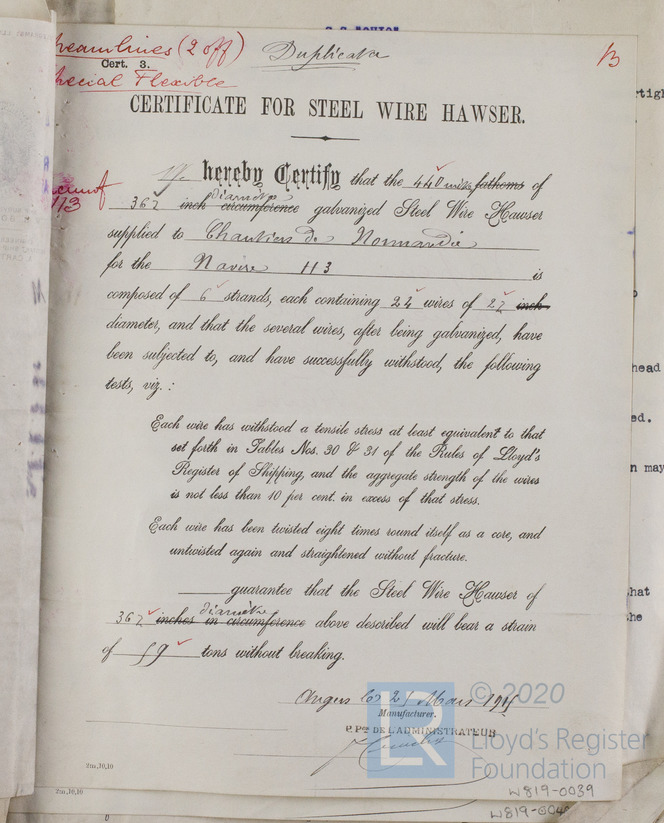 Streamlines (2 off)
Duplicata
B
Cert. 3.
Special Flexible
CERTIFICATE FOR STEEL WIRE HAWSER.
We hereby Certify that the 440 fathoms of
diamètre
36 inch circumference galvanized Steel Wire Hawser
113
supplied to Chantiers de Normandie
for the Navire 113 is
composed of 6 strands, each containing 24 wires of inch
diameter, and that the several wires, after being galvanized, have
been subjected to, and have successfully withstood, the following
tests, viz. :
Each wire has withstood a tensile stress at least equivalent to that
set forth in Tables Nos. 30 & 31 of the Rules of Lloyd's
Register of Shipping, and the aggregate strength of the wires
is not less than 10 per cent. in excess of that stress.
Each wire has been twisted eight times round itself as a core, and
untwisted again and straightened without fracture.
guarantee that the Steel Wire Hawser of
diamètre
36 inches in circumference above described will bear a strain
of 59 tons without breaking.
Angers le Mars
Manufacturer.
P. Pon DE L'ADMINISTRATEUR
LR
© 2020
Lloyd's Register
Foundation
2m,10,10
W819-0039
2m,10,10
W819-0040
head
ed.
n may
hat
he